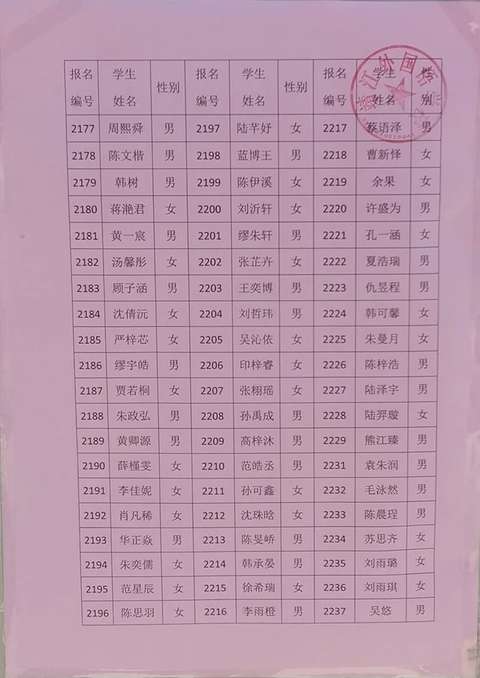 报名编号 学生姓名 性别 报名编号 学生姓名 性别 报名编号 学生姓名 性别
2177 周熙舜 男 2197 陆芊妤 女 2217 蔡语泽 男
2178 陈文楷 男 2198 蓝博王 男 2218 曹新怿 女
2179 韩树 男 2199 陈伊溪 女 2219 余果 女
2180 蒋滟君 女 2200 刘沂轩 女 2220 许盛为 男
2181 黄一宸 男 2201 缪朱轩 男 2221 孔一涵 女
2182 汤馨彤 女 2202 张芷卉 女 2222 夏浩瑞 男
2183 顾子涵 男 2203 王奕博 男 2223 仇昱程 男
2184 沈倩沅 女 2204 刘哲玮 男 2224 韩可馨 女
2185 严梓芯 女 2205 吴沁依 女 2225 朱曼月 女
2186 缪宇皓 男 2206 印梓睿 女 2226 陈梓浩 男
2187 贾若桐 女 2207 张栩瑶 女 2227 陆泽宇 男
2188 朱政弘 男 2208 孙禹成 男 2228 陆羿璇 女
2189 黄卿源 男 2209 高梓沐 男 2229 熊江臻 男
2190 薛槿雯 女 2210 范皓丞 男 2231 袁朱润 男
2191 李佳妮 女 2211 孙可鑫 女 2232 毛泳然 男
2192 肖凡稀 女 2212 沈珠晗 女 2233 陈晨珵 男
2193 华正焱 男 2213 陈旻峤 男 2234 苏思齐 女
2194 朱奕儒 女 2214 韩承晏 男 2235 刘雨璐 女
2195 范星辰 女 2215 徐希瑞 女 2236 刘雨琪 女
2196 陈思羽 女 2216 李雨橙 男 2237 吴悠 男